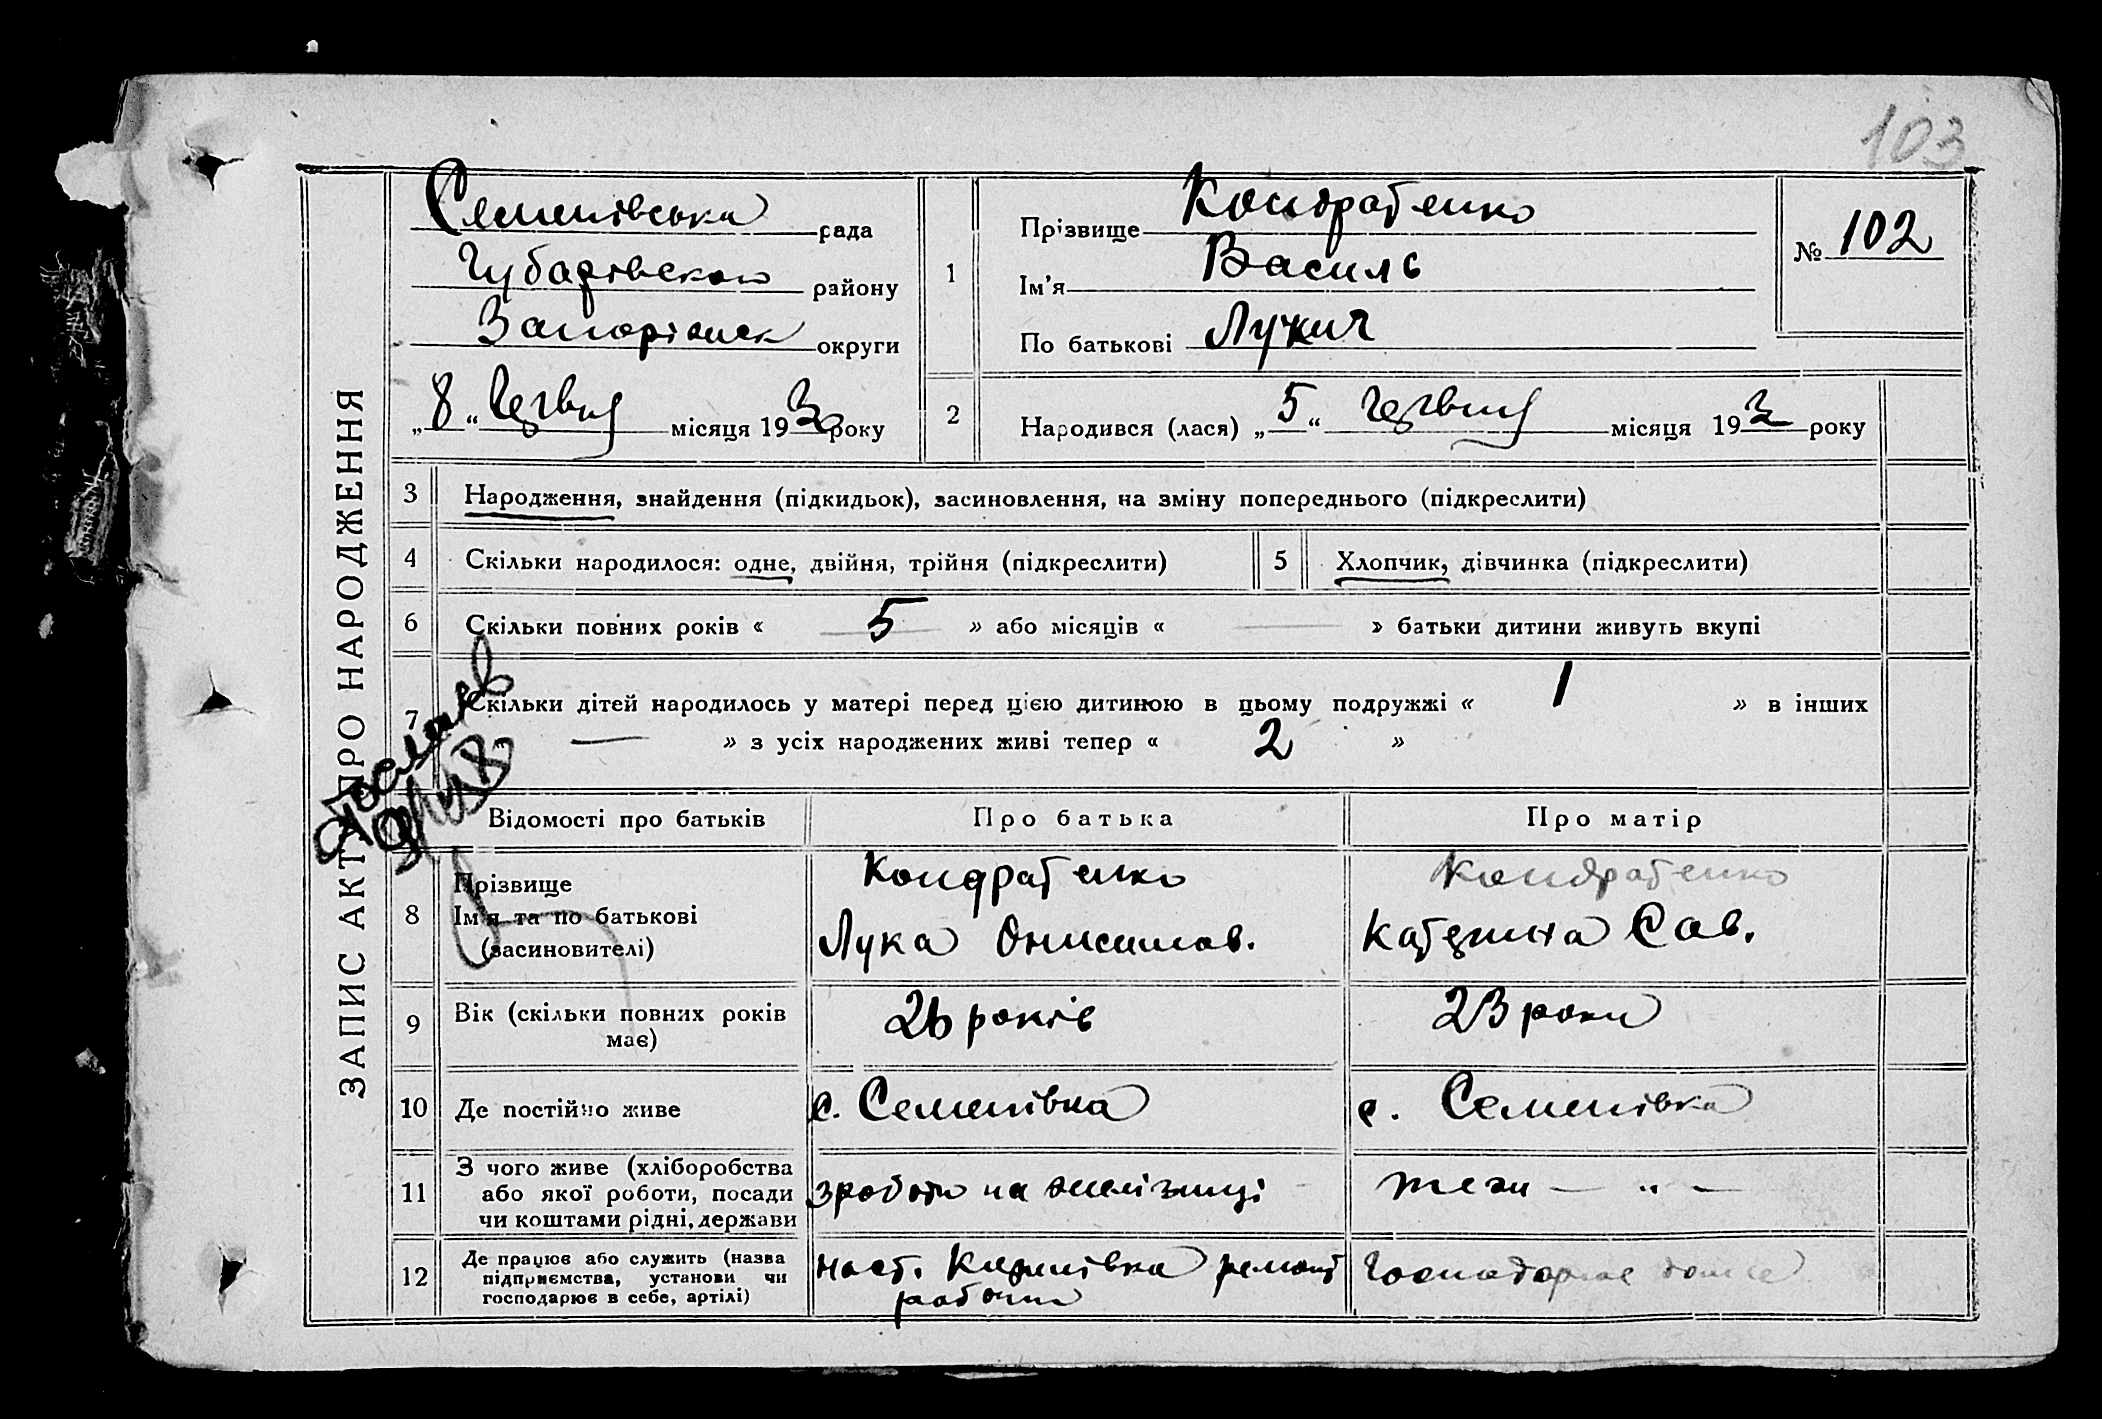 103
ЗАПИС АКТА ПРО НАРОДЖЕННЯ
Семенівська рада
Губарівського району
Запоріжск округи
„8“ Червня місяця 193 року
1
Прізвище Кондратенко
Ім'я Василь
По батькові Лукич
№ 102
2
Народився (лася) „5“ Червня місяця 193 року
3 Народження, знайдення (підкидьок), засиновлення, на зміну попереднього (підкреслити)
4 Скільки народилося: одне, двійня, трійня (підкреслити)
5 Хлопчик, дівчинка (підкреслити)
6 Скільки повних років « 5 » або місяців « — » батьки дитини живуть вкупі
7 Скільки дітей народилось у матері перед цією дитиною в цьому подружжі « 1 » в інших
— » з усіх народжених живі тепер « 2 »
Відомості про батьків Про батька Про матір
8
Прізвище Кондратенко Кондратенко
Ім'я та по батькові Лука Онисимов. Катерина Сав.
(засиновителі)
9 Вік (скільки повних років має) 26 років 23 роки
10 Де постійно живе с. Семенівка с. Семенівка
11 З чого живе (хліборобства
або якої роботи, посади
чи коштами рідні, держави
з роботи на желізниці теж — „ —
12 Де працює або служить (назва
підприємства, установи чи
господарює в себе, артілі)
ремонт
робочим
господарює дома